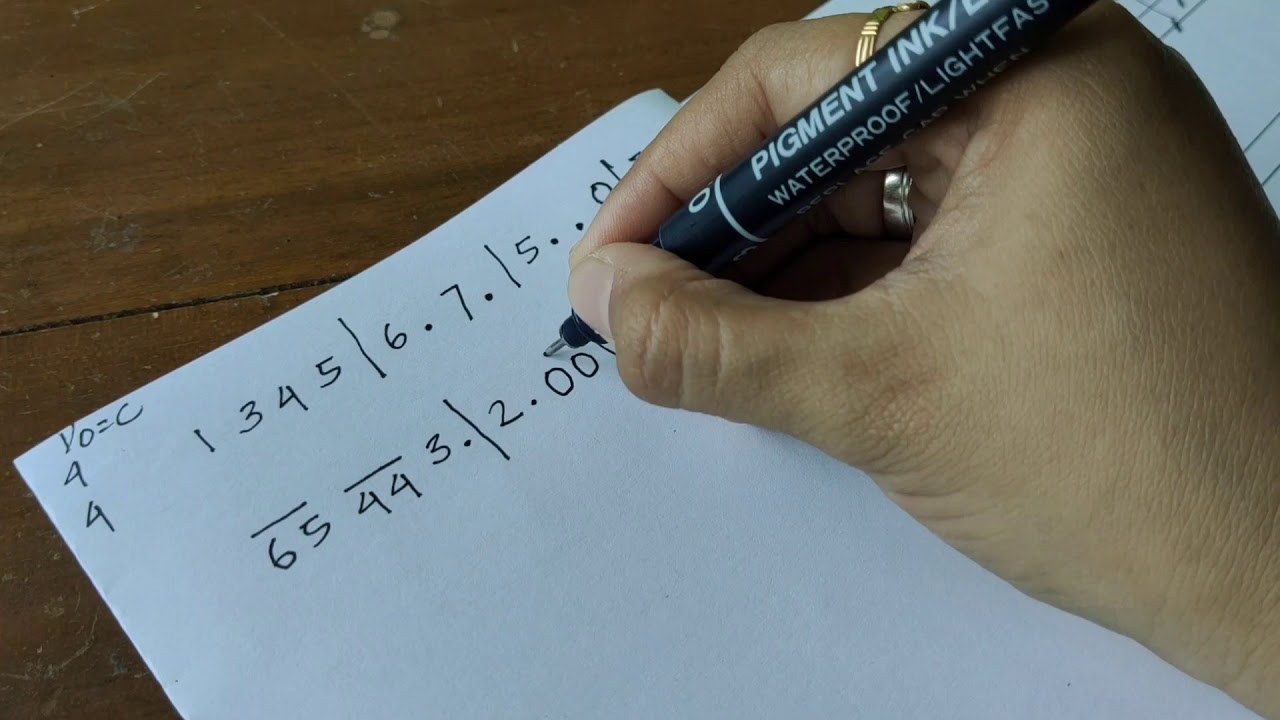 Do=C
4
4
1 3 4 5 | 6 . 7 . | 5 . . 0 |
6̅5̅ 4̅4̅ 3 . | 2 . 00
PIGMENT INK/
WATERPROOF/LIGHTFAS
CAP WHEN